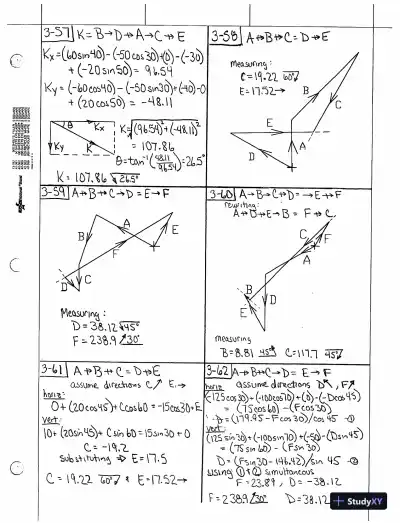 3-57 K = B → D ↛ A → C ↛ E
Kx = (60 sin 40) - (-50 cos 30) + (0) - (-30)
+ (-20 sin 50) = 96.54
Ky = (-60 cos 40) - (-50 sin 30) + (-40) - 0
+ (20 cos 50) = -48.11
θ Kx
Ky K
K = √(96.54)² + (-48.11)²
= 107.86
θ = tan⁻¹(48.11/96.54) = 26.5°
K = 107.86 26.5°
3-58 A ↛ B ↛ C = D ↛ E
measuring:
C = 19.22 60°
E = 17.52 →
B
C
E
D
A
3-59 A ↛ B ↛ C → D = E → F
A
B
E
F
D
C
Measuring:
D = 38.12 45°
F = 238.9 30°
3-60 A → B → C ↛ D = → E → F
rewriting:
A ↛ D ↛ E → B = F ↛ C
C
F
A
B
D
E
measuring
B = 8.81 45° C = 117.7 45°
3-61 A ↛ B ↛ C = D ↛ E
assume directions C E →
horiz:
0 + (20 cos 45) + C cos 60 = -15 cos 30 + E
vert:
10 + (20 sin 45) + C sin 60 = 15 sin 30 + 0
C = -19.2
substituting ⇒ E = 17.5
C = 19.22 60° & E = 17.52 →
3-62 A ↛ B ↛ C → D = E → F
horiz assume directions D, F
(-125 cos 30) - (-100 cos 70) + (0) - (-D cos 45)
= (75 cos 60) - (F cos 30)
D = (179.95 - F cos 30)/cos 45 ①
vert:
(125 sin 30) + (-100 sin 70) + (-50) - (D sin 45)
= (75 sin 60) - (F sin 30)
D = (F sin 30 - 146.42)/sin 45 ②
using ① & ② simultaneous
F = 23.89, D = -38.12
F = 238.9 30° D = 38.12
StudyXY